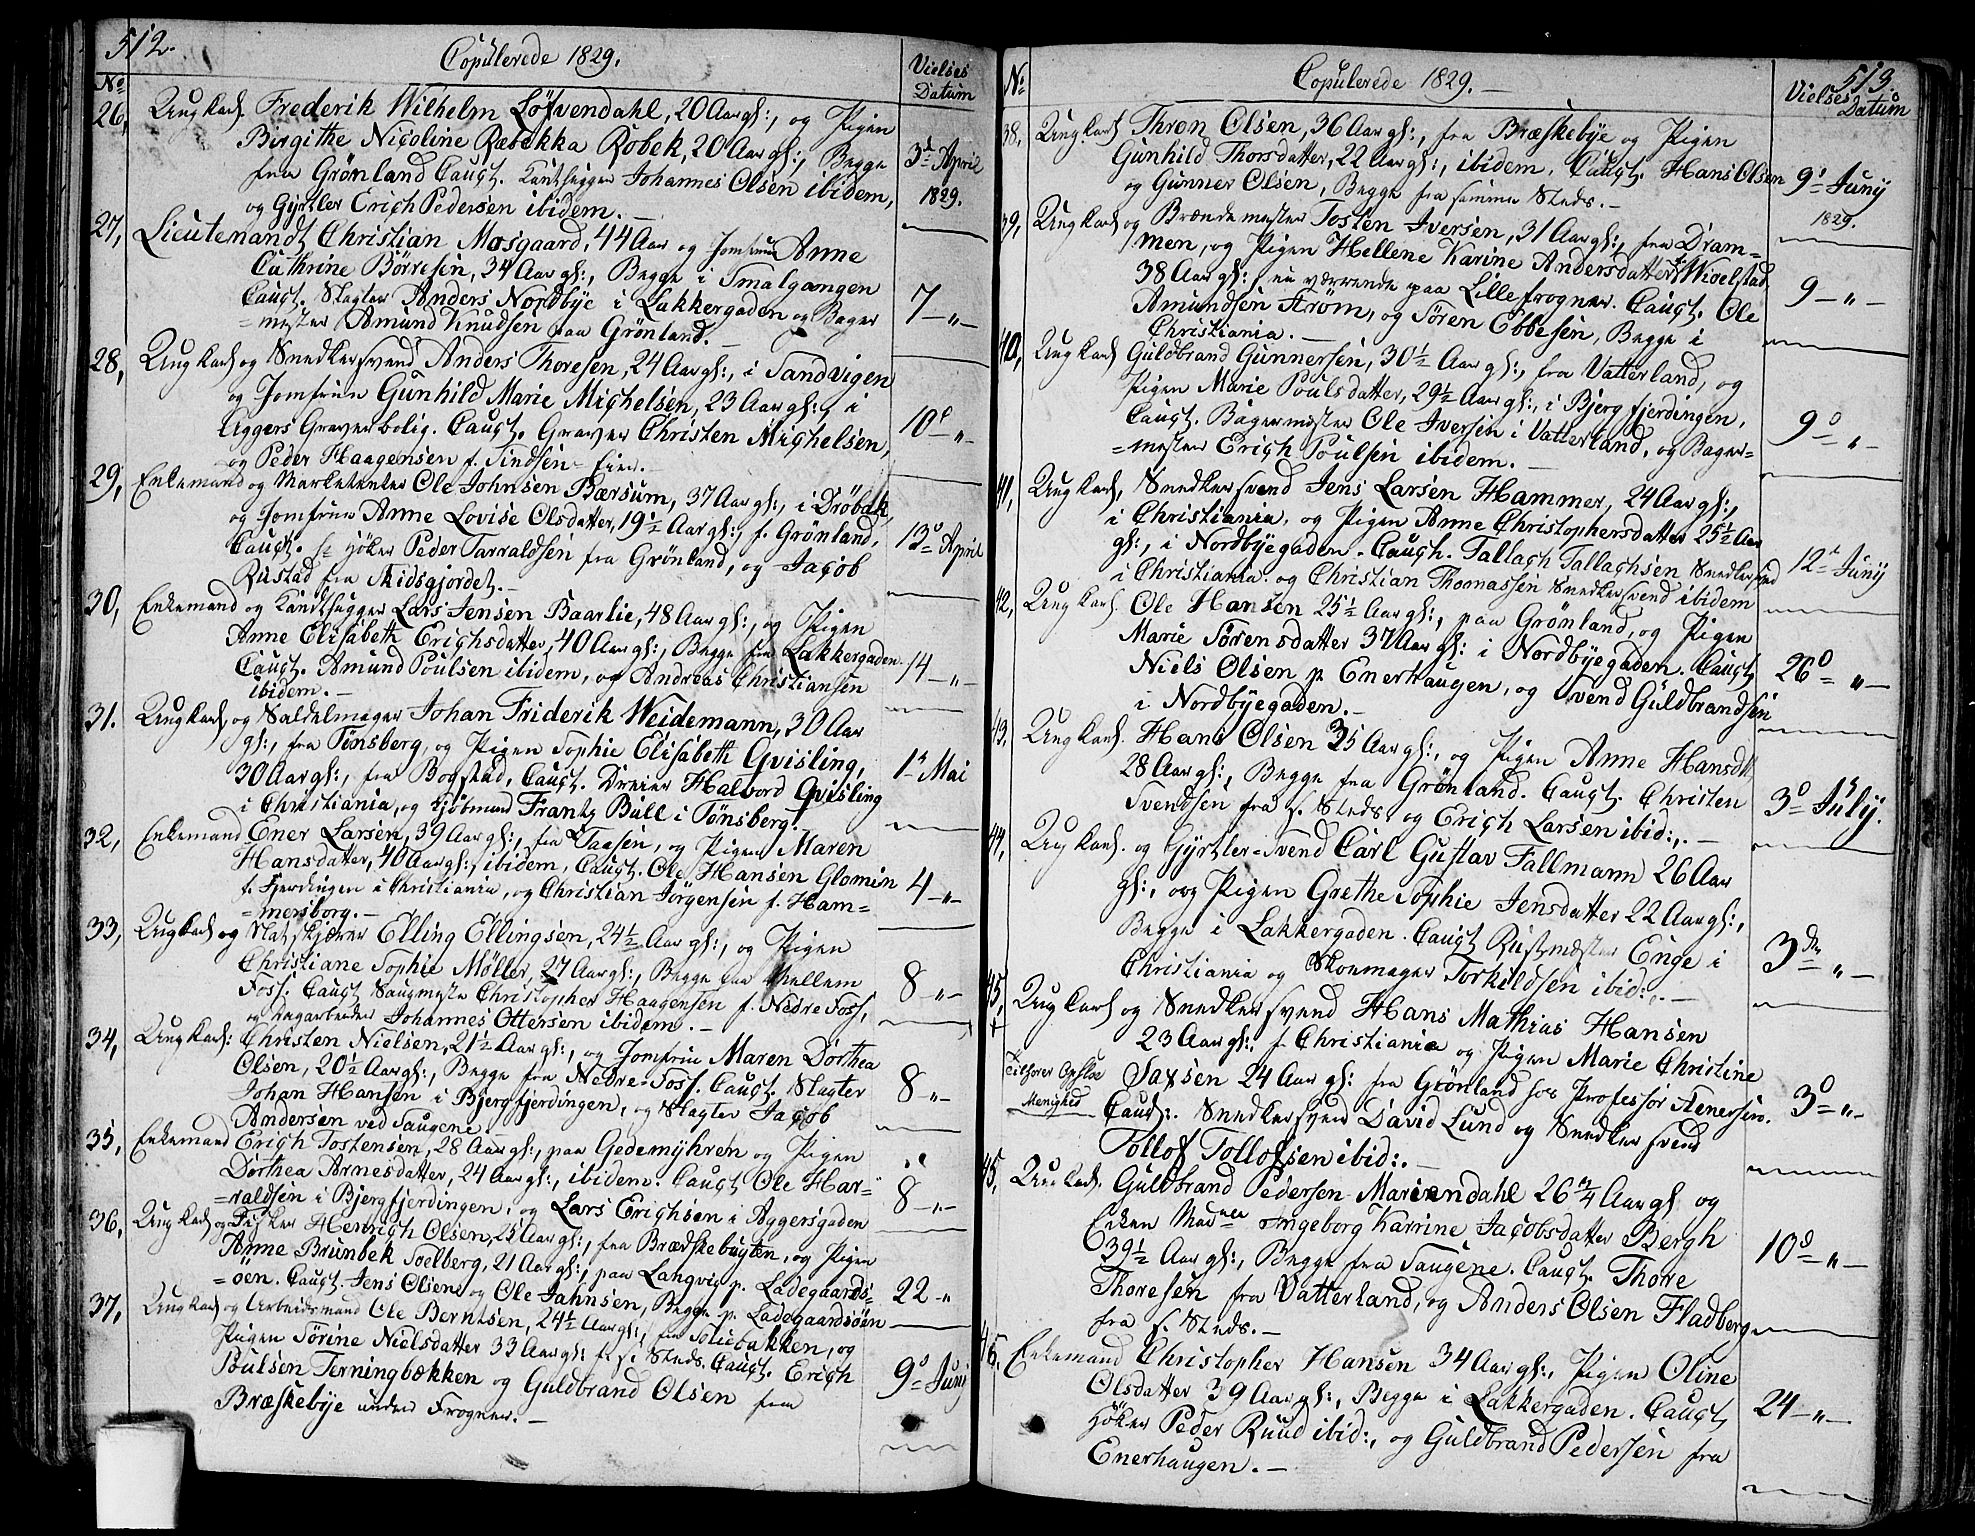 512.
Copulerede 1829.
Vielses
Datum
No
26, Ung Karl. Frederik Wilhelm Löfvendahl, 20 Aar gl:, og Pigen
Birgithe Nicoline Rebekka Robek, 20 Aar gl:, Begge
fra Grönland Caugt. Landhugger Johannes Olsen ibidem,
og Gyrtler Erich Pedersen ibidem. —
3d April
1829.
27, Lieutenandt Christian Mosgaard, 44 Aar og Jomfrue Anne
Cathrine Börresen, 34 Aar gl:, Begge i Smalgangen
Caugt. Slagter Anders Nordbye i Lakkergaden og Bager
=mester Amund Knudsen paa Grönland. —
7 — „ —
28, Ung Karl og Snedkersvend Anders Thoresen, 24 Aar gl:, i Sandvigen
og Jomfrue Gunhild Marie Michelsen, 23 Aar gl:, i
Aggers Graverbolig. Caugt. Graver Christen Michelsen,
og Peder Haagensen f. Sindsen-Eier. —
10d — „ —
29, Enkemand og Marketenter Ole Johnsen Bærsum, 37 Aar gl:, i Dröbak,
og Jomfrue Anne Lovise Olsdatter, 19½ Aar gl:, f. Grönland.
Caugt. Höker Peder Tarraldsen fra Grönland, og Jacob
Rustad fra Midsgjordet. —
13d April
30, Enkemand og Landhugger Lars Jensen Baarlie, 48 Aar gl:, og Pigen
Anne Elisabeth Erichsdatter, 40 Aar gl:, Begge fra Lakkergaden
Caugt. Amund Poulsen ibidem, og Andreas Christiansen
ibidem. —
14 — „ —
31. Ung Karl og Saddelmager Johan Friderik Weidemann, 30 Aar
gl:, fra Tønsberg, og Pigen Sophie Elisabeth Qvisling,
30 Aar gl:, fra Bogstad, Caugt. Dreier Halvord Qvisling
i Christiania, og Kjöbmand Frantz Bull i Tønsberg.
1ste Mai
32, Enkemand Ener Larsen, 39 Aar gl:, fra Taasen, og Pigen Maren
Hansdatter, 40 Aar gl:, ibidem, Caugt. Ole Hansen Glomin
f. Fjerdingen i Christiania, og Christian Jörgensen f. Ham=
=mersborg. —
4 — „ —
33, Ung Karl og Elling Ellingsen, 24½ Aar gl:, og Pigen
Christiane Sophie Møller, 27 Aar gl:, Begge fra Mellem
Foss. Caugt Saugmester Christopher Haagensen f. Nedre Foss,
og Johannes Ottersen ibidem. —
8 — „ —
34, Ung Karl: Christen Nielsen, 21½ Aar gl:, og Jomfrue Maren Dorthea
Olsen, 20½ Aar gl:, Begge fra Nedre-Foss. Caugt. Slagter
Johan Hansen i Bjergfjerdingen, og Slagter Jacob
Andersen ved Saugene.
8 — „ —
35, Enkemand Erich Tostensen, 28 Aar gl:, paa Gedemyhren og Pigen
Dorthea Arnesdatter, 24 Aar gl:, ibidem. Caugt Ole Har=
=raldsen i Bjergfjerdingen, og Lars Erichsen i Aggersgaden
8 — „ —
36, Ung Karl og Fisker Henrich Olsen, 25 Aar gl:, fra Brædskebugten, og Pigen
Anne Brunbek Soelberg, 21 Aar gl:, paa Langvig p. Ladegaards=
=öen. Caugt. Jens Olsen og Ole Jahnsen, Begge p. Ladegaardsöen
22 „
37, Ung Karl og Arbeidsmand Ole Berntsen, 24½ Aar gl:, fra
Pigen Sörine Nielsdatter 33 Aar gl: f. s: Steds. Caugt. Erich
Poulsen Terningbækken og Guldbrand Olsen fra
Bræskebye under Frogner. —
9d Juni
No
Copulerede 1829. —
513.
Vielses
Datum
38, Ung Karl Thron Olsen, 36 Aar gl:, fra Bræskebye og Pigen
Gunhild Thorsdatter, 22 Aar gl:, ibidem. Caugt. Hans Olsen
og Gunner Olsen, Begge fra samme Steds. —
9d Juny
1829.
39, Ung Karl og Brændemester Tosten Iversen, 31 Aar gl:, fra Dram=
men, og Pigen Hellene Karine Andersdatter Woelstad
38 Aar gl:, nu værrende paa Lille frogner. Caugt. Ole
Amundsen Strøm, og Sören Ebbesen, Begge i
Christiania. —
9 — „ —
40, Ung Karl Guldbrand Gunnersen, 30½ Aar gl:, fra Vatterland, og
Pigen Marie Poulsdatter, 29½ Aar gl:, i Bjergfjerdingen,
Caugt. Bagermester Ole Iversen i Vatterland, og Bager=
=mester Erich Poulsen ibidem. —
9d „ —
41, Ung Karl, Snedkersvend Jens Larsen Hammer, 24 Aar gl:,
i Christiania, og Pigen Anne Christophersdatter 25½ Aar
gl:, i Nordbyegaden. Caugt. Tallach Tallachsen Snedkersvend
i Christiania. og Christian Thomassen Snedkersvend ibidem
12d Juny
42, Ung Karl Ole Hansen 25½ Aar gl:, paa Grönland, og Pigen
Marie Sörensdatter 37 Aar gl: i Nordbyegaden. Caugt
Niels Olsen p. Enerhaugen, og Svend Guldbrandsen
i Nordbyegaden. —
26d „ —
43, Ung Karl. Hans Olsen 35 Aar gl:, og Pigen Anne Hansdtr
28 Aar gl:, Begge fra Grönland. Caugt. Christen
Svendsen fra s. Steds. og Erich Larsen ibid:,. —
3d July.
44, Ung Karl. og Gyrtler-Svend Carl Gustav Fallmann 26 Aar
gl:, og Pigen Grethe Sophie Jensdatter 22 Aar gl:,
Begge i Lakkergaden. Caugt Rustmester Enge i
Christiania og Skoemager Torkildsen ibid:. —
3die „ —
45, Ung Karl og Snedkersvend Hans Mathias Hansen
+
23 Aar gl:, f. Christiania og Pigen Marie Christine
Tilhører Opslœ
Menighed
Saxsen 24 Aar gl: fra Grönland hos Professor Stenersen.
Caut:. Snedkersvend David Lund og Snedkersvend
Tollof Tollofsen ibid:. —
3d „ —
45, Ung Karl. Guldbrand Pedersen Mariendahl 26¾ Aar gl og
Enken Ingeborg Karrine Jacobsdatter Bergh
39½ Aar gl:, Begge fra Saugene. Caugt. Thore
Thoresen fra Vatterland, og Anders Olsen Fladberg
fra s. Steds. —
10d „ —
46, Enkemand Christopher Hansen 34 Aar gl:, Pigen Oline
Olsdatter 39 Aar gl:, Begge i Lakkergaden. Caugt
Höker Peder Ruud ibid:, og Guldbrand Pedersen fra
Enerhaugen. —
24 — „ —